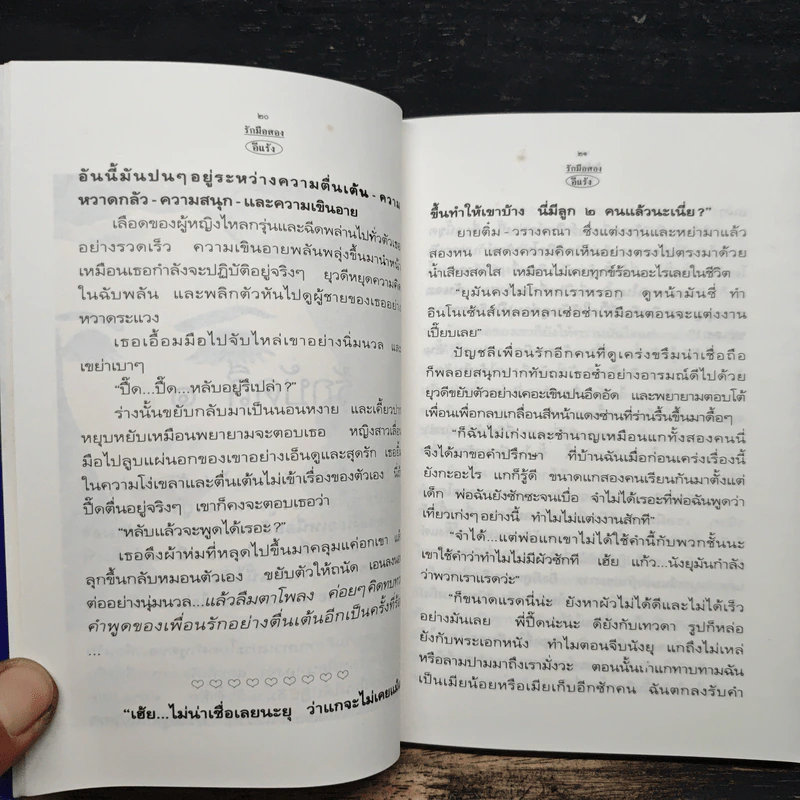 ๒๐
รักมือสอง
อีแร้ง
อันนี้มันปนๆอยู่ระหว่างความตื่นเต้น - ความ
หวาดกลัว - ความสนุก - และความเขินอาย
เลือดของผู้หญิงไหลกรุ่นและฉีดพล่านไปทั่วตัวเธอ
อย่างรวดเร็ว ความเขินอายพลันพลุ่งขึ้นมานำหน้า
เหมือนเธอกำลังจะปฏิบัติอยู่จริงๆ ยุวดีหยุดความคิด
ในฉับพลัน และพลิกตัวหันไปดูผู้ชายของเธออย่าง
หวาดระแวง
เธอเอื้อมมือไปจับไหล่เขาอย่างนิ่มนวล และ
เขย่าเบาๆ
“ปี๊ด...ปี๊ด...หลับอยู่รึเปล่า?”
ร่างนั้นขยับกลับมาเป็นนอนหงาย และเคี้ยวปาก
หยุบหยับเหมือนพยายามจะตอบเธอ หญิงสาวเลื่อน
มือไปลูบแผ่นอกของเขาอย่างเอ็นดูและสุดรัก เธอ
ในความโง่เขลาและตื่นเต้นไม่เข้าเรื่องของตัวเอง
ปี๊ดตื่นอยู่จริงๆ เขาก็คงจะตอบเธอว่า
“หลับแล้วจะพูดได้เรอะ?”
เธอดึงผ้าห่มที่หลุดไปขึ้นมาคลุมแค่อกเขา แล้ว
ลุกขึ้นกลับหมอนตัวเอง ขยับตัวให้ถนัด เอนลงนอน
ต่ออย่างนุ่มนวล...แล้วลืมตาโพลง ค่อยๆคิดทบทวน
คำพูดของเพื่อนรักอย่างตื่นเต้นอีกเป็นครั้งที่
...
“เฮ้ย...ไม่น่าเชื่อเลยนะยุ ว่าแกจะไม่เคย
๒๑
รักมือสอง
อีแร้ง
ขึ้นทำให้เขาบ้าง นี่มีลูก ๒ คนแล้วนะเนี่ย?”
ยายติ๋ม - วรางคณา ซึ่งแต่งงานและหย่ามาแล้ว
สองหน แสดงความคิดเห็นอย่างตรงไปตรงมาด้วย
น้ำเสียงสดใส เหมือนไม่เคยทุกข์ร้อนอะไรเลยในชีวิต
“ยุมันคงไม่โกหกเราหรอก ดูหน้ามันซี่ ทำ
อินโนเซ้นส์เหลอหลาเซ่อซ่าเหมือนตอนจะแต่งงาน
เปี๊ยบเลย”
ปัญชลีเพื่อนรักอีกคนที่ดูเคร่งขรึมน่าเชื่อถือ
ก็พลอยสนุกปากทับถมเธอซ้ำอย่างอารมณ์ดีไปด้วย
ยุวดีขยับตัวอย่างเคอะเขินปนอึดอัด และพยายามตอบโต้
เพื่อนเพื่อกลบเกลื่อนสีหน้าแดงซ่านที่ร่านรื้นขึ้นมาดื้อๆ
“ก็ฉันไม่เก่งและชำนาญเหมือนแกทั้งสองคนนี่
จึงได้มาขอคำปรึกษา ที่บ้านฉันเมื่อก่อนเคร่งเรื่องนี้
ยังกะอะไร แกก็รู้ดี ขนาดแกสองคนเรียนกันมาตั้งแต่
เด็ก พ่อฉันยังซักซะจนเบื่อ จำไม่ได้เรอะที่พ่อฉันพูดว่า
เที่ยวเก่งๆอย่างนี้ ทำไมไม่แต่งงานสักที”
“จำได้...แต่พ่อแกเขาไม่ได้ใช้คำนี้กับพวกชั้นนะ
เขาใช้คำว่าทำไมไม่มีผัวซักที เฮ้ย แก้ว...นังยุมันกำลัง
ว่าพวกเราแรดว่ะ”
“ก็ขนาดแรดนี่น่ะ ยังหาผัวไม่ได้ดีและไม่ได้เร็ว
อย่างมันเลย พี่ปี๊ดน่ะนะ ดียังกับเทวดา รูปก็หล่อ
ยังกับพระเอกหนัง ทำไมตอนจีบนังยุ แกถึงไม่เหล่
หรือลามปามมาถึงเรามั่งวะ ตอนนั้นถ้าแกทาบทามฉัน
เป็นเมียน้อยหรือเมียเก็บอีกซักคน ฉันตกลงรับคำ